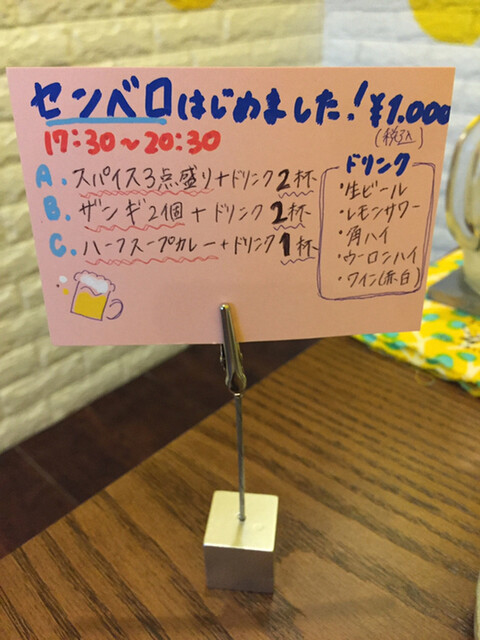 センベロはじめました!¥1.000
(税込)
17:30～20:30
A. スパイス3点盛り+ドリンク2杯
B. ザンギ2個 + ドリンク 2杯
C. ハーフスープカレー+ドリンク1杯
ドリンク
・生ビール
・レモンサワー
・角ハイ
・ウーロンハイ
・ワイン(赤白)